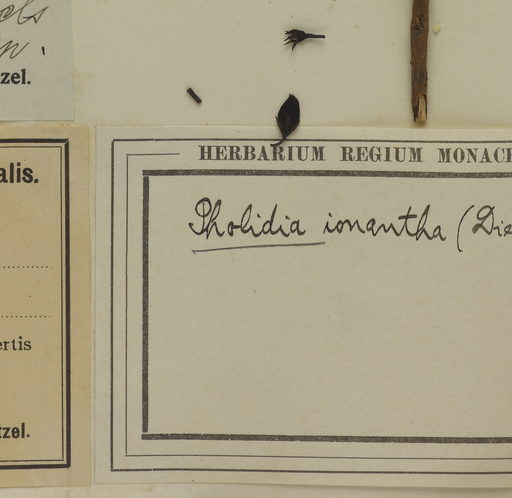 tzel.
alis.
ertis
tzel.
HERBARIUM REGIUM MONAC
Pholidia ionantha (Die